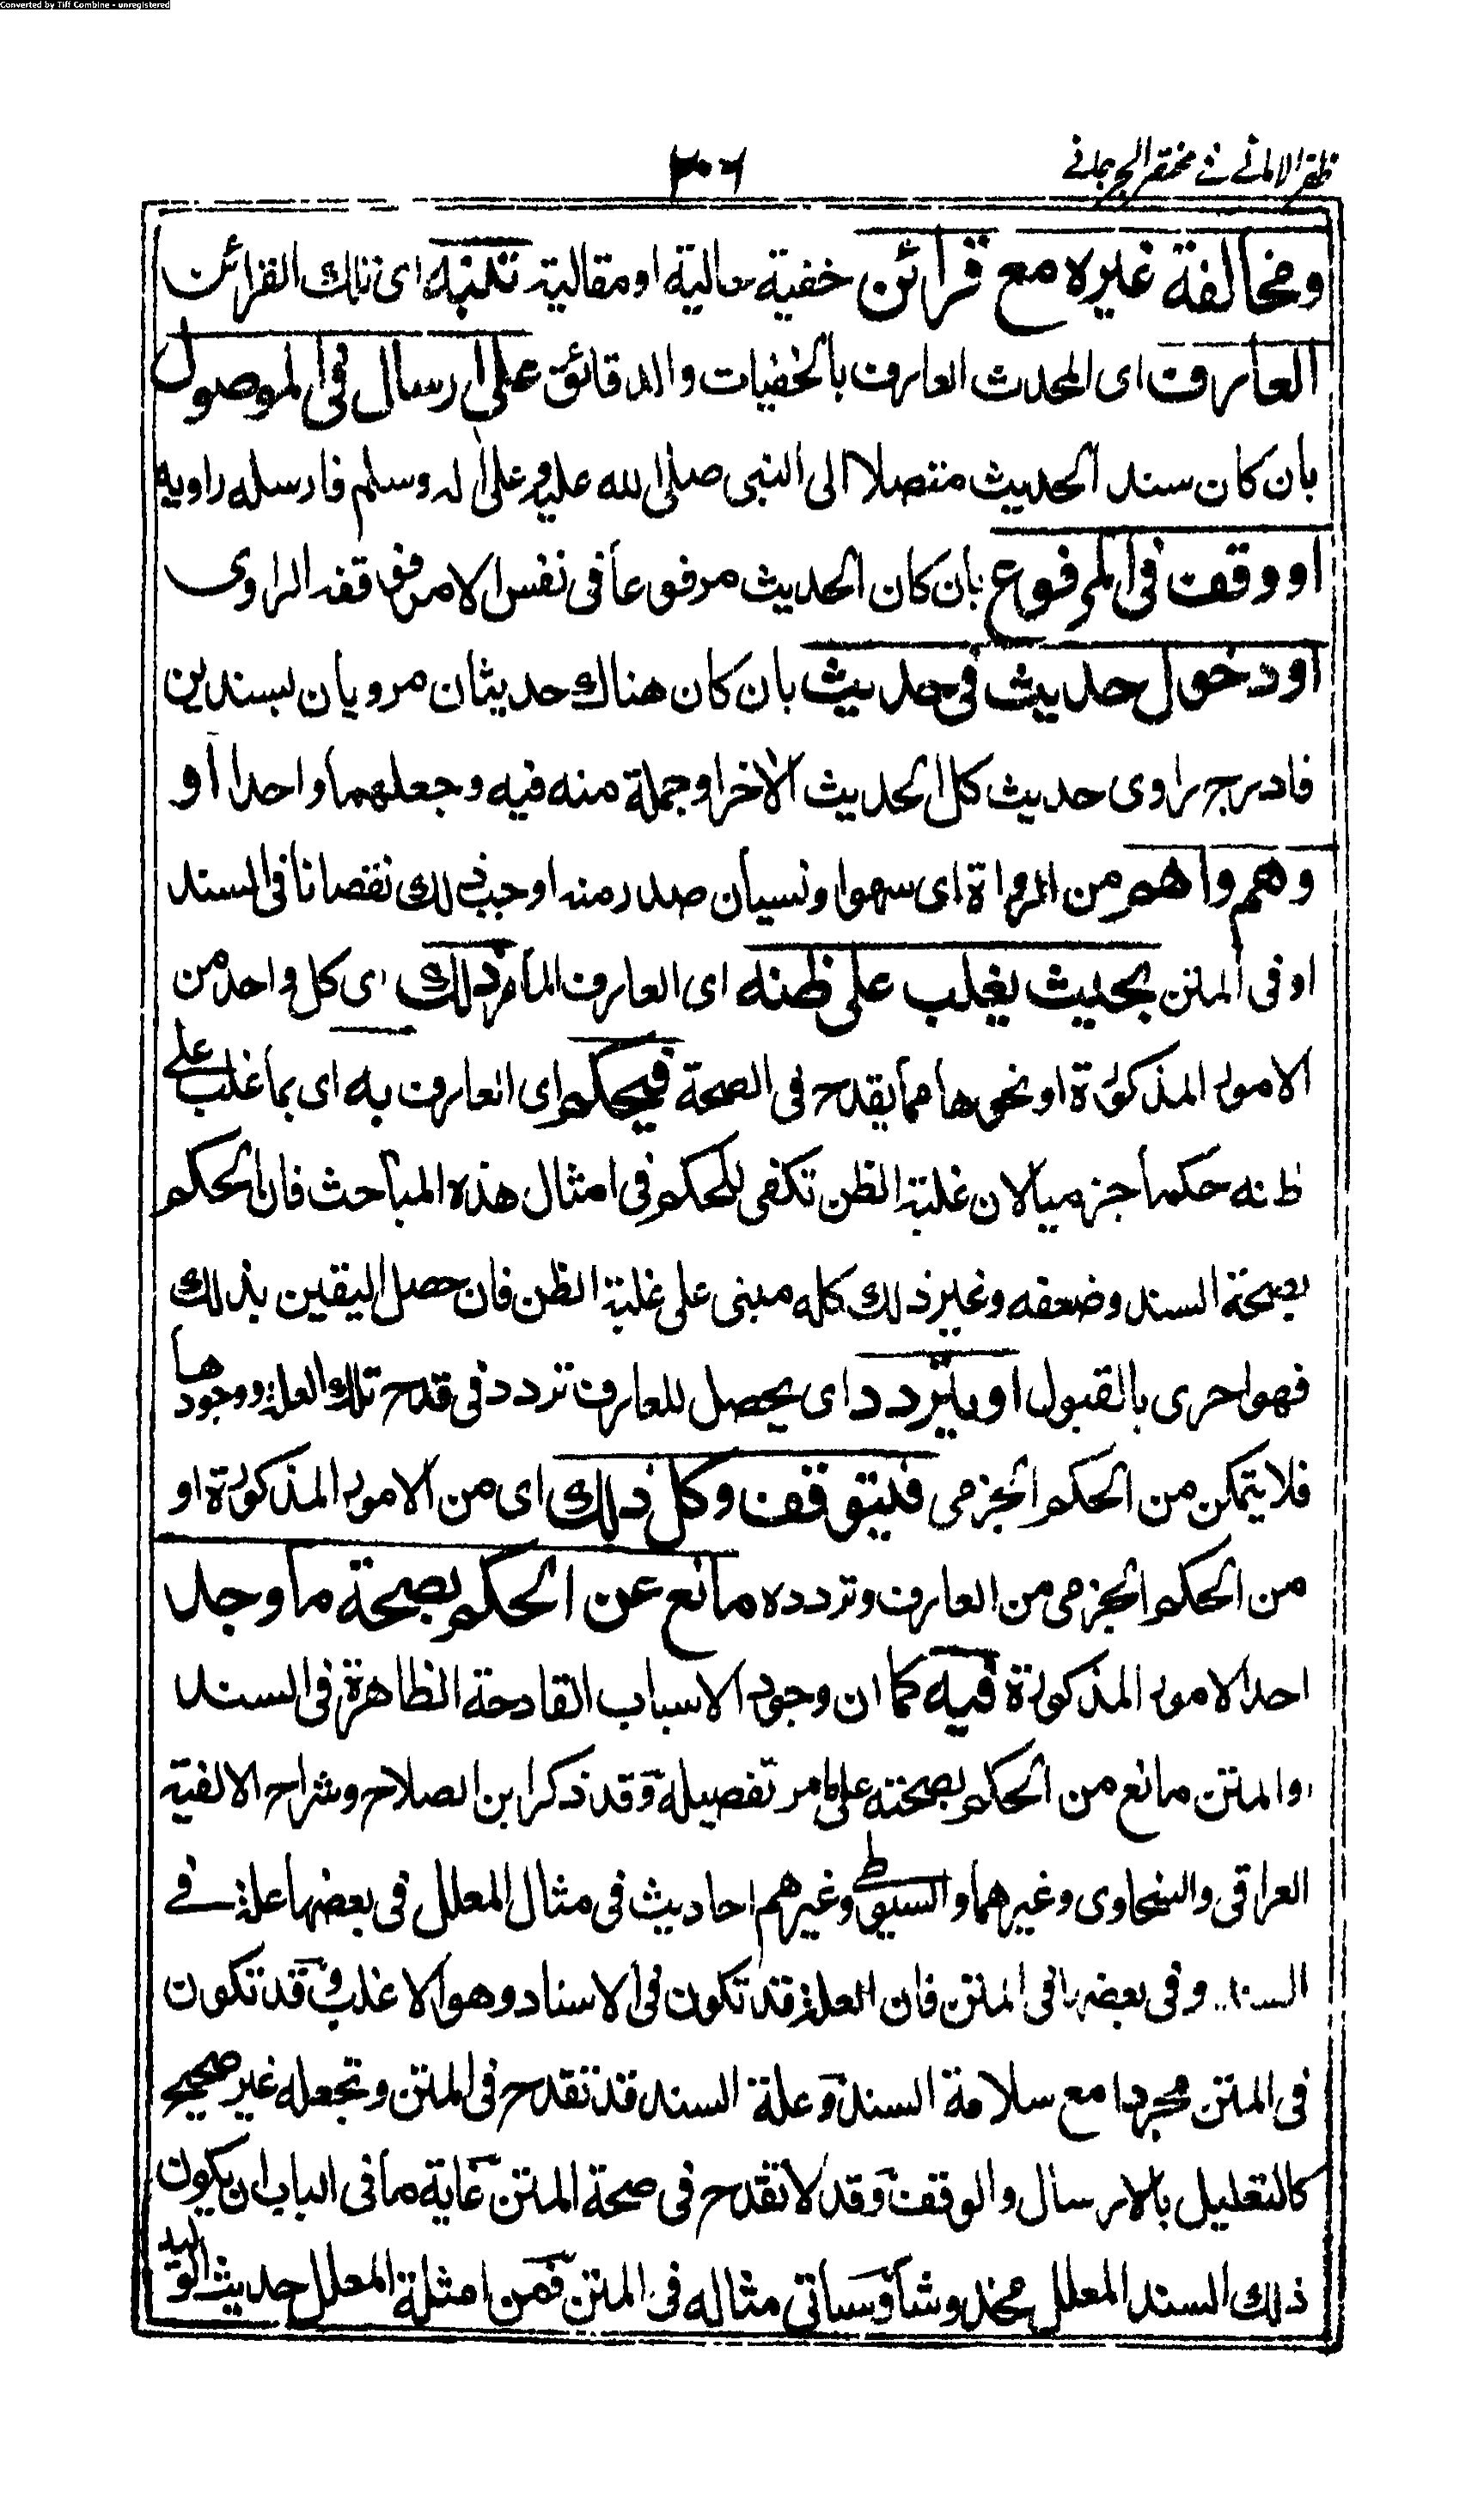 Converted by Tiff Combine - unregistered
ظفر الامانى فى مختصر الجرجانے
۲۰۶
ومخالفة غيره مع قرائن خفية حالية او مقالية تنبه اى تلك القرائن
العارف اى المحدث العارف بالخفيات والدقائق على ارسال فى الموصول
بان كان سند الحديث متصلا الى النبى صلى الله عليه وعلى اله وسلم فارسله راويه
او وقف فى المرفوع بان كان الحديث مرفوعا فى نفس الامر فوقفه الراوى
او دخول حديث فى حديث بان كان هناك حديثان مرويان بسندين
فادرج راوى حديث كل الحديث الأخر او جملة منه فيه وجعلهما واحدا او
وهم واهم من الرواة اى سهو او نسيان صدر منه اوجب ذلك نقصانا فى السند
او فى المتن بحيث يغلب على ظنه اى العارف الماهر ذلك اى كل واحد من
الامور المذكورة او نحوها مما يقدح فى الصحة فيحكم اى العارف به اى بما غلب على
ظنه حكما جزميا لان غلبة الظن تكفى للحكم فى امثال هذه المباحث فان الحكم
بصحة السند وضعفه وغير ذلك كله مبنى على غلبة الظن فان حصل اليقين بذلك
فهو احرى بالقبول او يتردد اى يحصل للعارف تردد فى قدح تلك العلة ووجودها
فلا يتمكن من الحكم الجزمى فيتوقف وكل ذلك اى من الامور المذكورة او
من الحكم الجزمى من العارف وتردده مانع عن الحكم بصحة ما وجد
احد الامور المذكورة فيه كما ان وجود الاسباب القادحة الظاهرة فى السند
والمتن مانع من الحكم بصحته على ما مر تفصيله وقد ذكر ابن الصلاح وشراح الالفية
العراقى والسخاوى وغيرهما والسيوطى وغيرهم احاديث فى مثال المعلل فى بعضها علة فے
السند وفى بعضها فى المتن فان العلة قد تكون فى الاسناد وهو الاغلب وقد تكون
فى المتن مجردا مع سلامة السند وعلة السند قد تقدح فى المتن وتجعله غير صحيح
كالتعليل بالارسال والوقف وقد لا تقدح فى صحة المتن غاية ما فى الباب ان يكون
ذلك السند المعلل مخدوشا وسياتى مثاله فى المتن فمن امثلة المعلل حديث الوليد